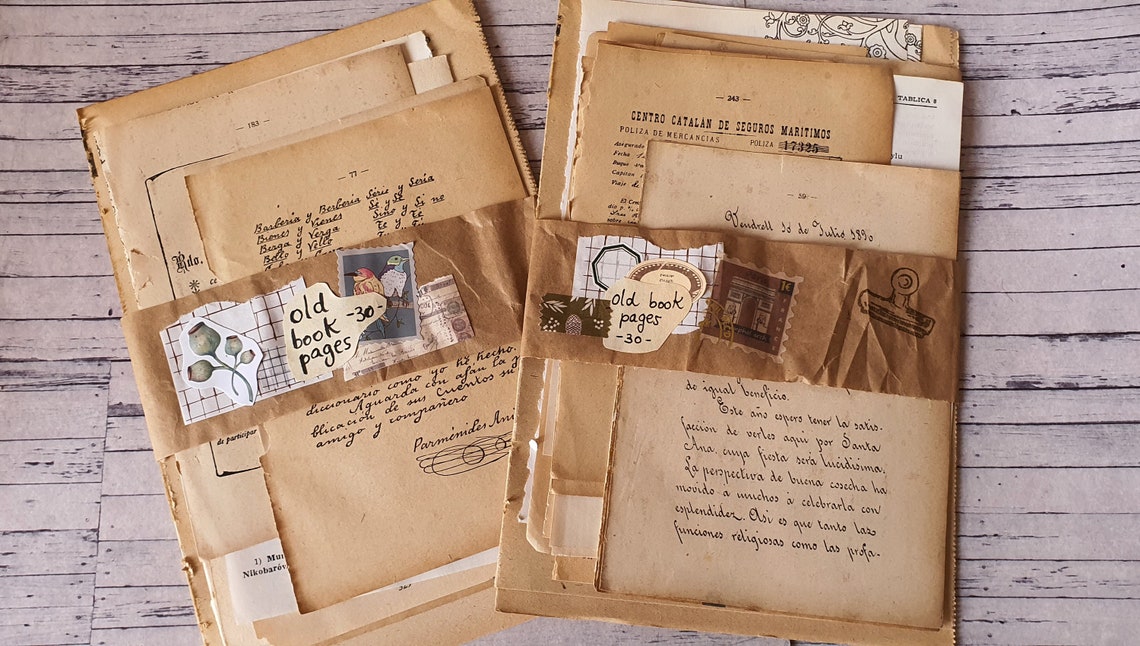 — 183 —
— 77 —
Barbería y Berbería Série y Sería
Bienes y Vienes Si y Sé
Berga y Verga Sino y Si no
Bollo y Vello Te y Té
Rdo.
old book
pages -30-
de participar
diccionario como yo he hecho.
Aguarda con afan la
blicación de sus Cuentos su
amigo y compañero
Parménides
1) Mu
Nikobarov
— 243 —
CENTRO CATALÁN DE SEGUROS MARÍTIMOS
POLIZA DE MERCANCIAS POLIZA 17325
Asegurado
Fecha
Buque
Capitán
Viaje de
TABLICA 8
— 59 —
Vendrell 16 de Julio 1896
old book
pages
-30-
1€
de igual beneficio.
Este año espero tener la satis-
facción de verles aquí por Santa
Ana, cuya fiesta será lucidísima.
La perspectiva de buena cosecha ha
movido a muchos á celebrarla con
esplendidez. Asi es que tanto las
funciones religiosas como las profa-